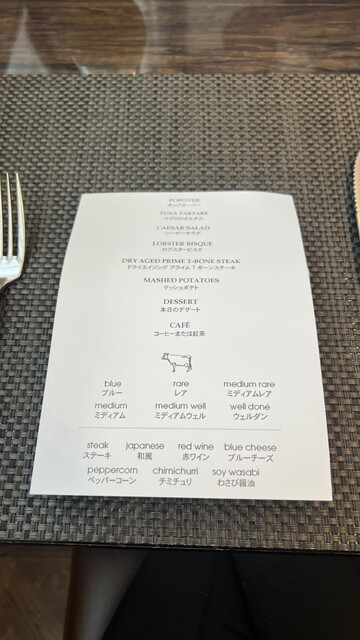 POPOVER
ポップオーバー
TUNA TARTARE
マグロのタルタル
CAESAR SALAD
シーザーサラダ
LOBSTER BISQUE
ロブスタービスク
DRY AGED PRIME T-BONE STEAK
ドライエイジング プライム T ボーンステーキ
MASHED POTATOES
マッシュポテト
DESSERT
本日のデザート
CAFÉ
コーヒーまたは紅茶
blue rare medium rare
ブルー レア ミディアムレア
medium medium well well doné
ミディアム ミディアムウェル ウェルダン
steak japanese red wine blue cheese
ステーキ 和風 赤ワイン ブルーチーズ
peppercorn chimichurri soy wasabi
ペッパーコーン チミチュリ わさび醤油